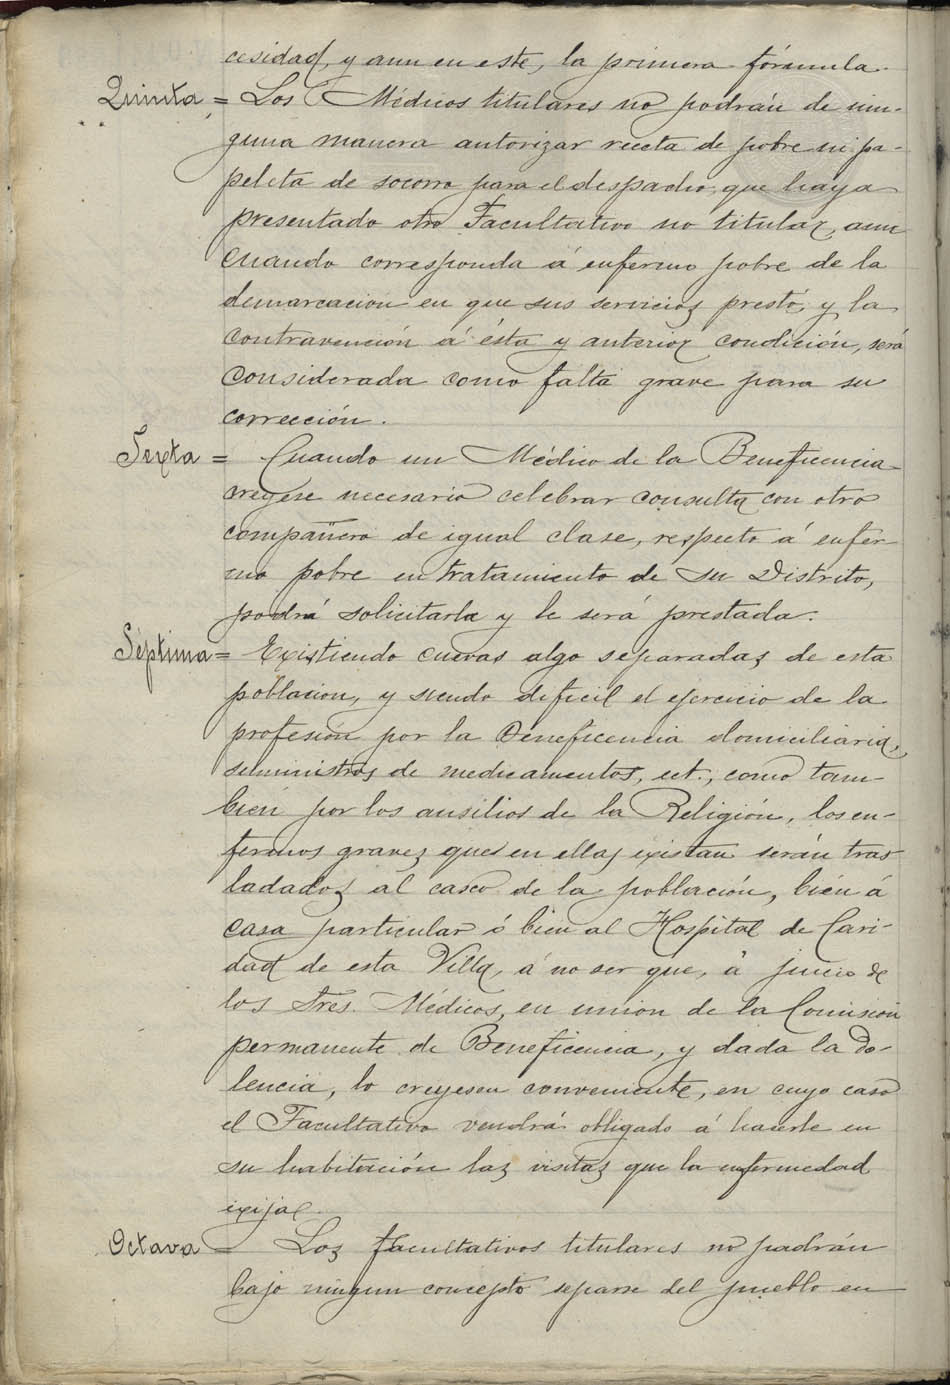 cesidad, y aun en este, la primera fórmula.
Quinta = Los Médicos titulares no podrán de nin-
guna manera autorizar receta de pobre ni pa-
peleta de socorro para el despacho, que haya
presentado otro Facultativo no titular, aun
cuando corresponda á enfermo pobre de la
demarcacion en que sus servicios prestó, y la
contravención á ésta y anterior condición, será
considerada como falta grave para su
corrección.
Sexta = Cuando un Médico de la Beneficencia
creyese necesario celebrar consulta con otro
compañero de igual clase, respecto á enfer
mo pobre en tratamiento de su Distrito,
podrá solicitarla y le será prestada.
Séptima = Existiendo cuevas algo separadas de esta
poblacion, y siendo dificil el ejercicio de la
profesión por la Beneficencia domiciliaria,
suministros de medicamentos, ect., como tam-
bién por los ausilios de la Religión, los en-
fermos graves que en ellas existan serán tras
ladados al casco de la población, bién á
casa particular ó bien al Hospital de Cari-
dad de esta Villa, á no ser que, á juicio de
los tres Médicos, en union de la Comisión
permanente de Beneficencia, y dada la do-
lencia, lo creyesen conveniente, en cuyo caso
el Facultativo vendrá obligado á hacerle en
su habitación las visitas que la enfermedad
exija.
Octava = Los facultativos titulares no podrán
bajo ningun concepto separse del pueblo en